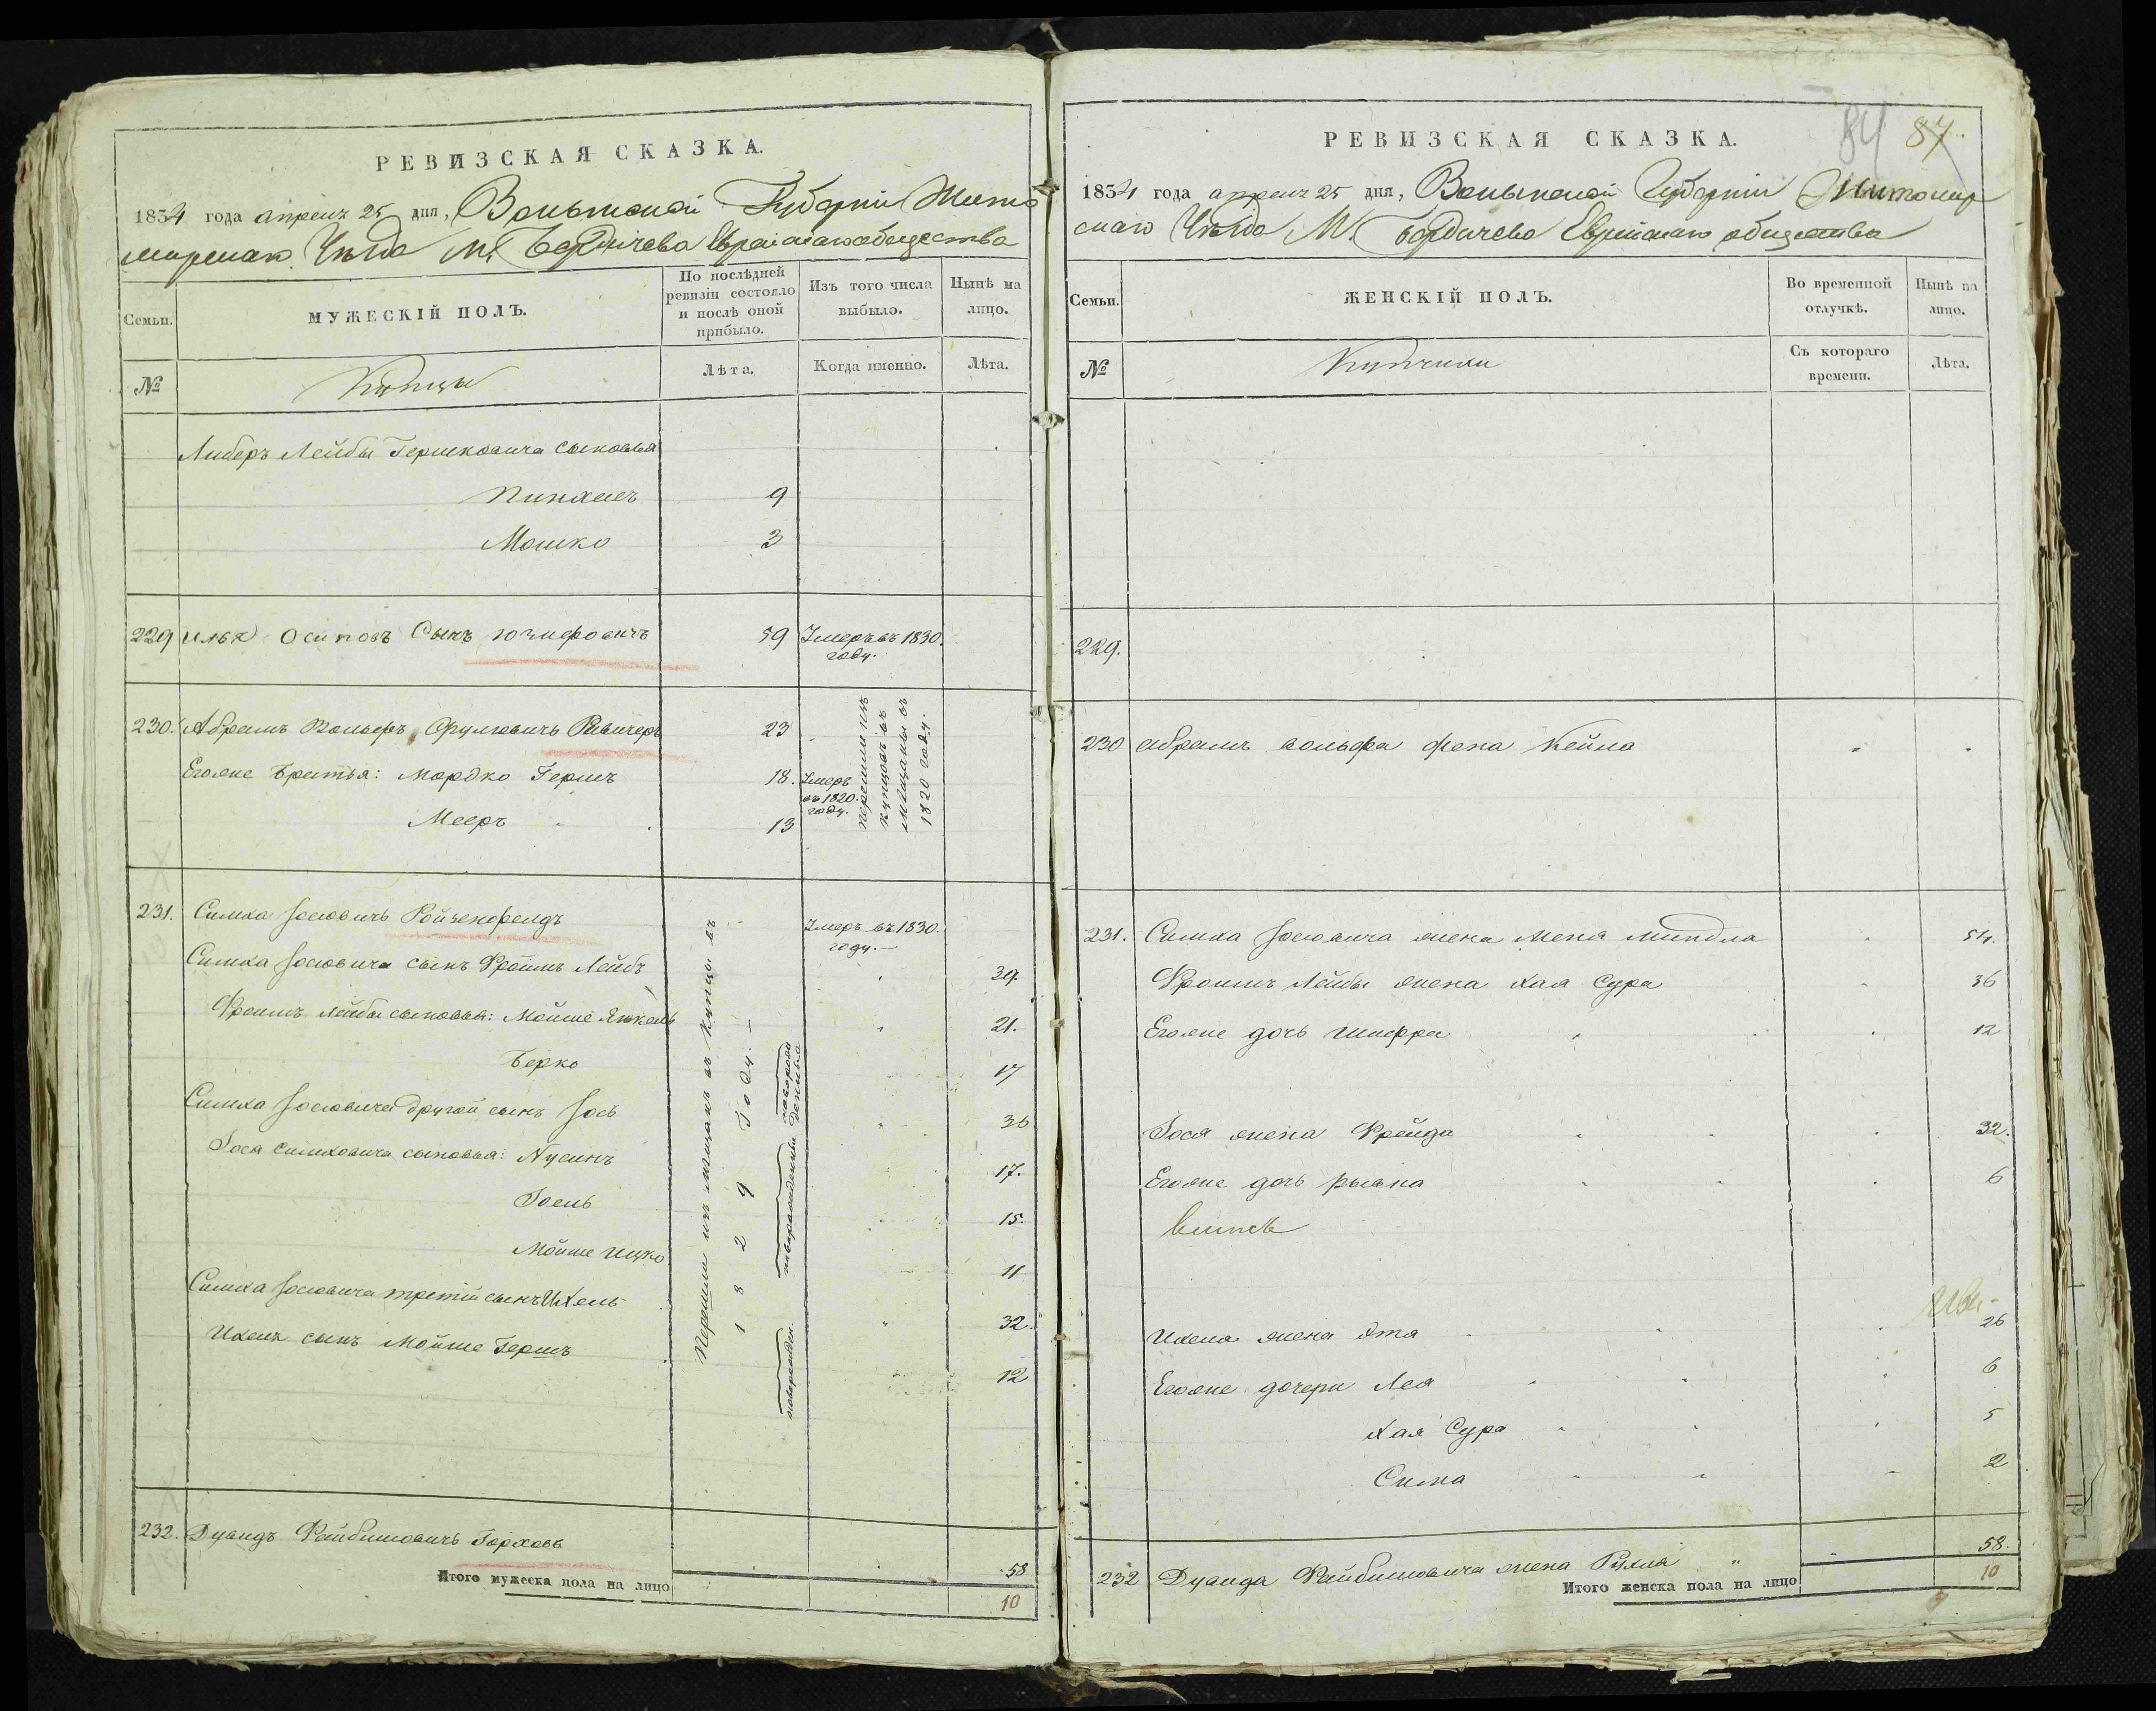 РЕВИЗСКАЯ СКАЗКА.
1834 года апреля 25 дня, Волынской Губерніи Жито
мирскаго Уѣзда М. Бердичева Еврейскаго общества
Семьи.
МУЖЕСКІЙ ПОЛЪ.
По послѣдней ревизіи состояло и послѣ оной прибыло.
Изъ того числа выбыло.
Нынѣ на лицо.
№
Купцы
Лѣта.
Когда именно.
Лѣта.
Либеръ Лейбы Гершковича сыновья
Пинхасъ 9
Мошко 3
229 Илья Осиповъ Сынъ 59 Умеръ въ 1830. году.
230. Абрамъ Вольфъ Сруловичъ 23
Егоже братья: Мордко Гершъ 18. Умеръ въ 1820. году.
Мееръ 13
перешли изъ купцовъ въ мѣщаны въ 1820 году.
231. Симха Іосіовичъ Ройзенфелдъ Умеръ въ 1830. году.
Симха Іосіовича сынъ Фроимъ Лейбъ 39.
Фроимъ Лейбы сыновья: Мойше Янкель 21.
Берко 17
Симха Іосіовича другой сынъ Іось 36
Іося Симховича сыновья: Нусинъ 17.
Іоель 15.
Мойше Ицко 11
Симха Іосіовича третій сынъ Ихель 32.
Ихеля сынъ Мойше Гершъ 12
Перешли изъ мѣщанъ въ купцы въ
1829 Году.
новорожденны
новорожден.
232. Дувидъ Файбишовичъ Горховъ 58
Итого мужеска пола на лицо 10
84 87.
РЕВИЗСКАЯ СКАЗКА.
1834 года апреля 25 дня, Волынской Губерніи Житомир
скаго Уѣзда М. Бердичева Еврейскаго общества
Семьи.
ЖЕНСКІЙ ПОЛЪ.
Во временной отлучкѣ.
Нынѣ на лицо.
№
Купчихи
Съ котораго времени.
Лѣта.
229.
230 Абрамъ Вольфа жена Кейла
231. Симха Іосіовича жена Меня Миндла 54.
Фроимъ Лейбы жена Хая Сура 36
Егоже дочь Шифра 12
Іося жена Фрейда 32.
Егоже дочь Рывка 6
Ихеля жена Этя 26
Егоже дочери Лея 6
Хая Сура 5
Сима 2
232 Дувида Файбишовича жена Рухля " 58.
Итого женска пола на лицо 10